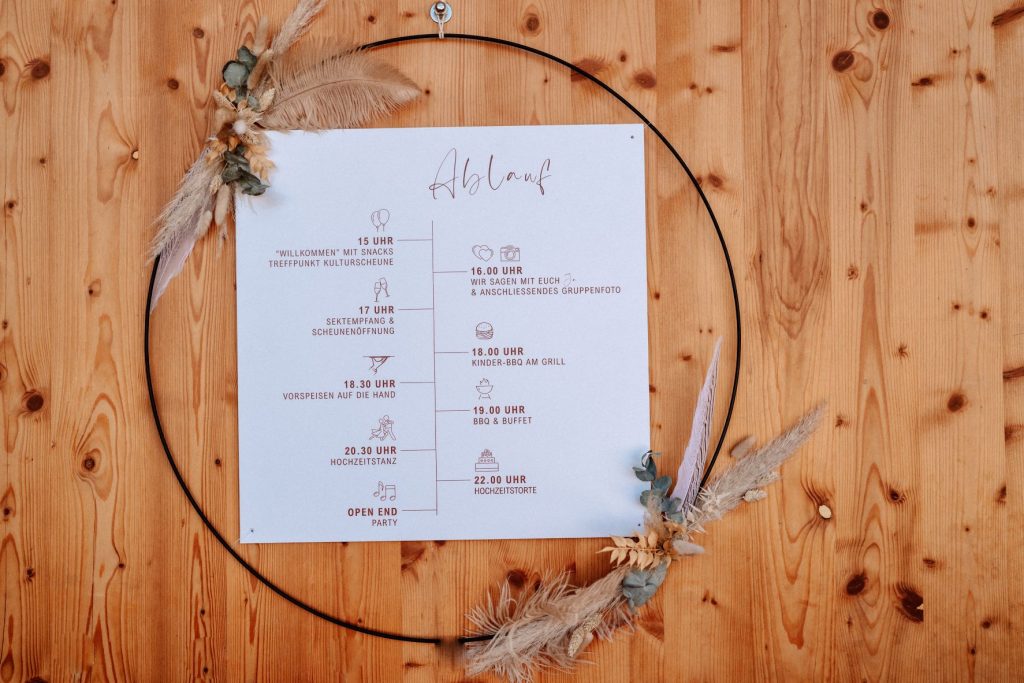 Ablauf
15 UHR
"WILLKOMMEN" MIT SNACKS
TREFFPUNKT KULTURSCHEUNE
16.00 UHR
WIR SAGEN MIT EUCH Ja
& ANSCHLIESSENDES GRUPPENFOTO
17 UHR
SEKTEMPFANG &
SCHEUNENÖFFNUNG
18.00 UHR
KINDER-BBQ AM GRILL
18.30 UHR
VORSPEISEN AUF DIE HAND
19.00 UHR
BBQ & BUFFET
20.30 UHR
HOCHZEITSTANZ
22.00 UHR
HOCHZEITSTORTE
OPEN END
PARTY